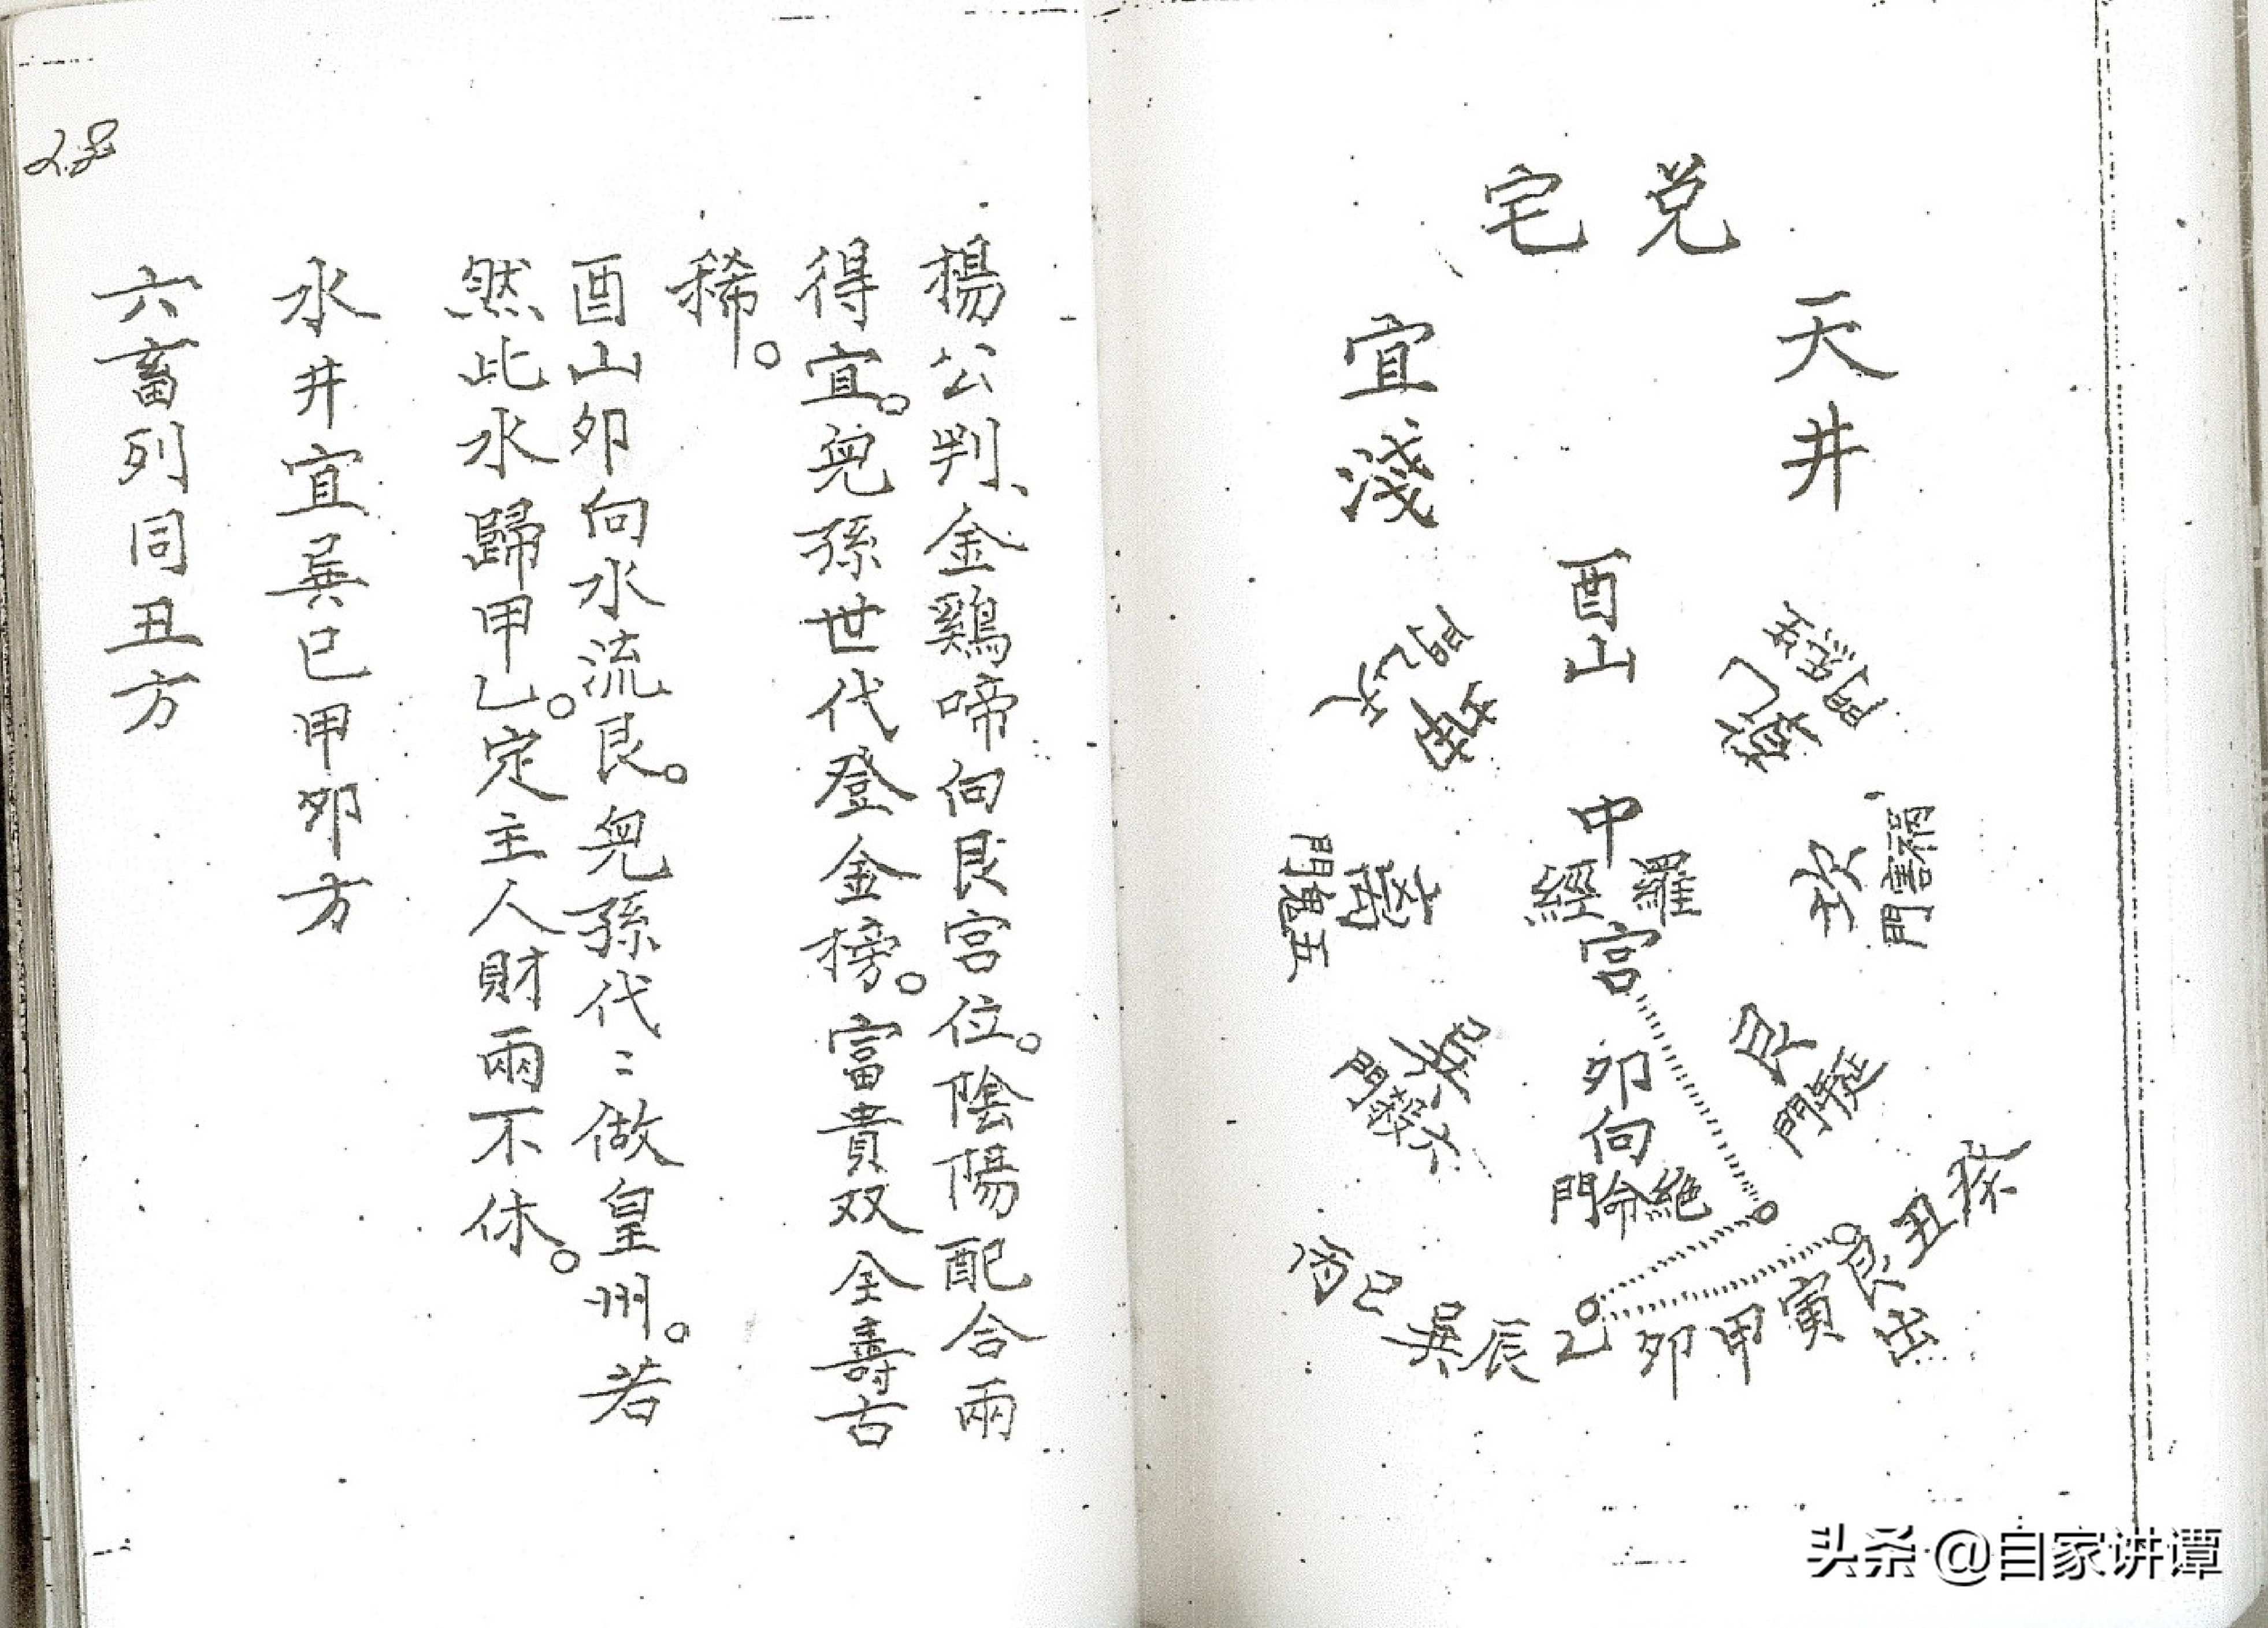 兌宅
天井
宜淺
酉山
乾
門浮生
坤
門乙天
中宮
羅經
坎
禍害門
离
五鬼門
艮
延門
巽
六殺門
卯向
絶命門
癸丑艮寅甲卯乙辰巽巳丙
出
楊公判、金鷄啼向艮宮位。陰陽配合兩
得宜。兒孫世代登金榜。富貴双全壽古
稀。
酉山卯向水流艮。兒孫代〻做皇州。若
然此水歸甲乙。定主人財兩不休。
水井宜巽巳甲卯方
六畜列同丑方
28
头条 @自家讲谭